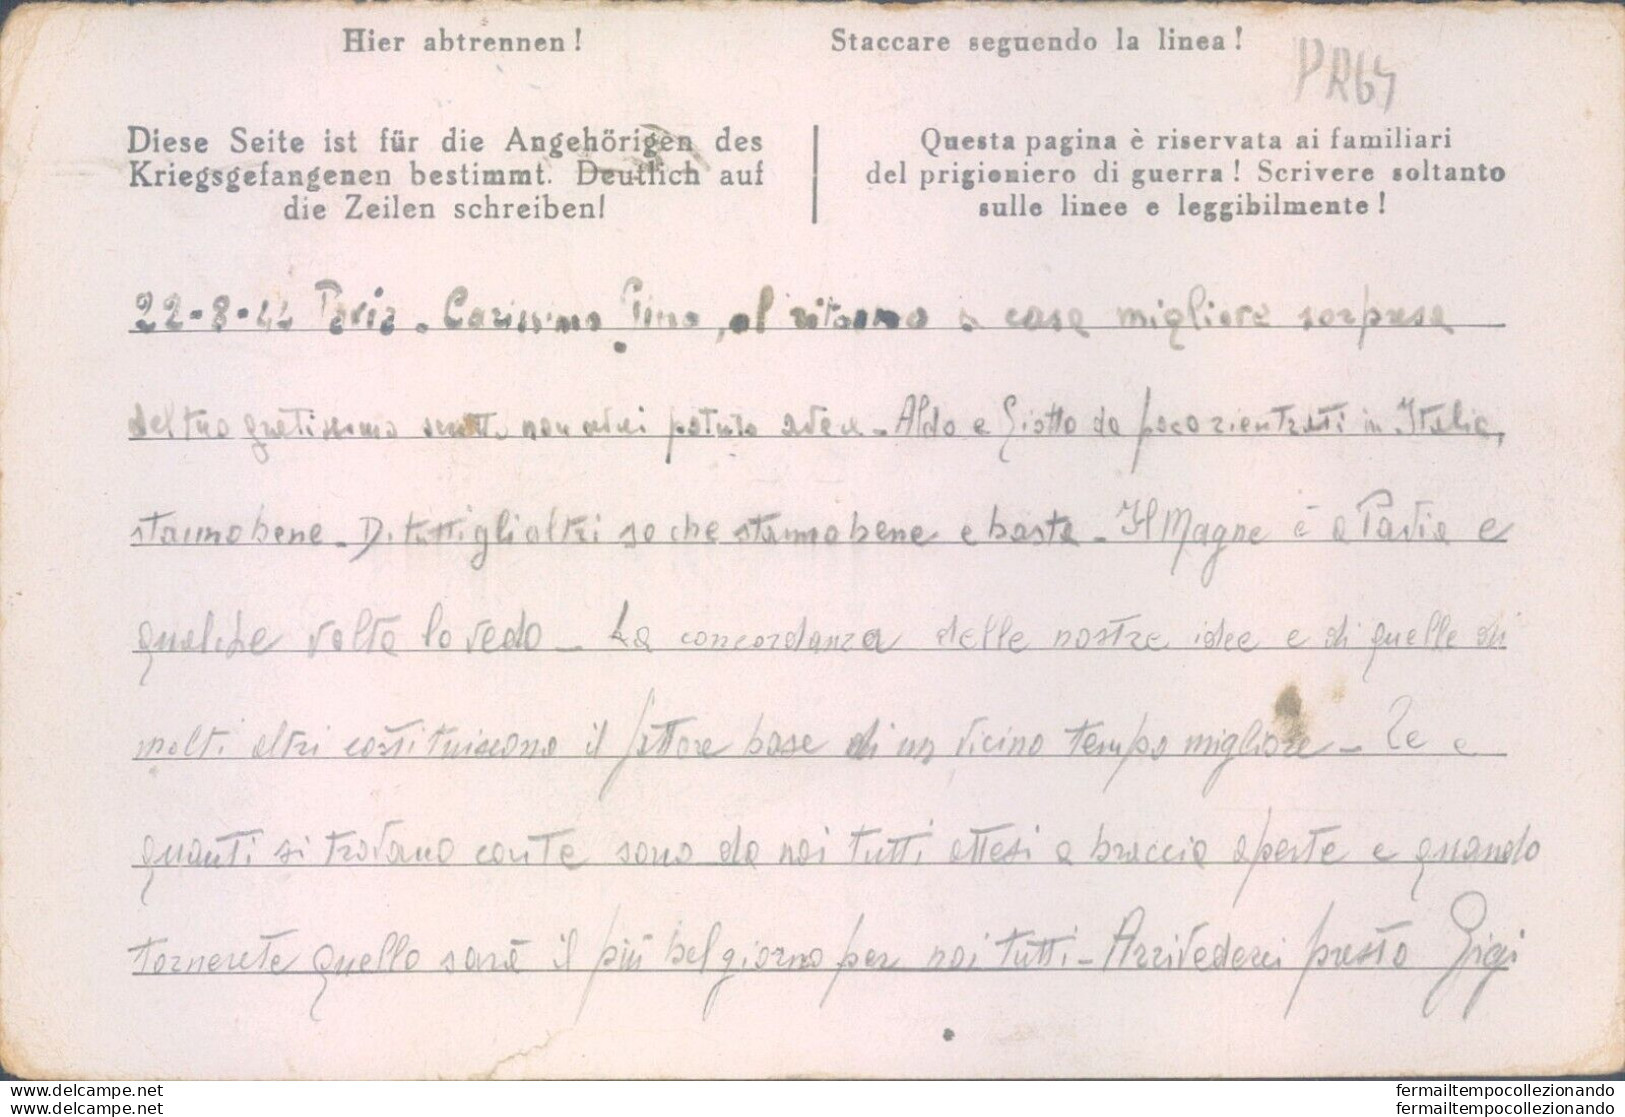 Hier abtrennen!
Staccare seguendo la linea!
PR64
Diese Seite ist für die Angehörigen des
Kriegsgefangenen bestimmt. Deutlich auf
die Zeilen schreiben!
Questa pagina è riservata ai familiari
del prigioniero di guerra! Scrivere soltanto
sulle linee e leggibilmente!
22-8-44 Pavia. Carissimo Gino, al ritorno a casa migliore sorpresa
del tuo gratissimo scritto non avrei potuto avere - Aldo e Giotto da poco rientrati in Italia,
stanno bene - Di tutti gli altri so che stanno bene e basta - Il Magne è a Pavia e
qualche volta lo vedo - La concordanza delle nostre idee e di quelle di
molti altri costituiscono il fattore base di un vicino tempo migliore - Te e
quanti si trovano con te sono da noi tutti attesi a braccia aperte e quando
tornerete quello sarà il più bel giorno per noi tutti - Arrivederci presto Gigi
delcampe.net
delcampe.net
fermailtempocollezionando
fermailtempocollezionando